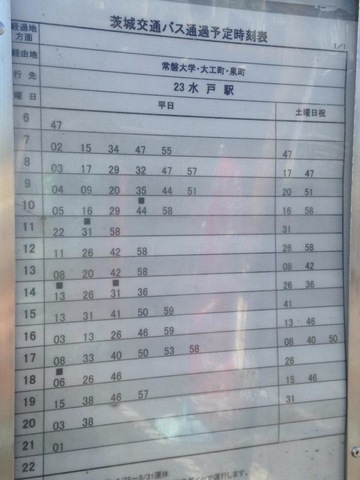 茨城交通バス通過予定時刻表
1/1
経過地
方面
経由地 常磐大学・大工町・泉町
行先 23 水戸駅
曜日 平日 土曜日祝
6 47
7 02 15 34 47 55 47
8 03 17 29 32 47 57 17 47
9 04 09 20 35 44 51 20 51
■
10 05 16 29 44 58 16 58
■
11 22 31 58 31
12 11 26 42 58 26 58
13 08 20 42 58 08 42
■ ■
14 13 26 31 36 26 36
15 13 31 41 50 59 41
16 03 13 26 46 59 13 46
17 08 33 40 50 53 58 08 40 50
■
18 06 26 46 26
19 15 38 46 57 15 46
20 03 38 31
21 01
22
8/31運休
で運行します。